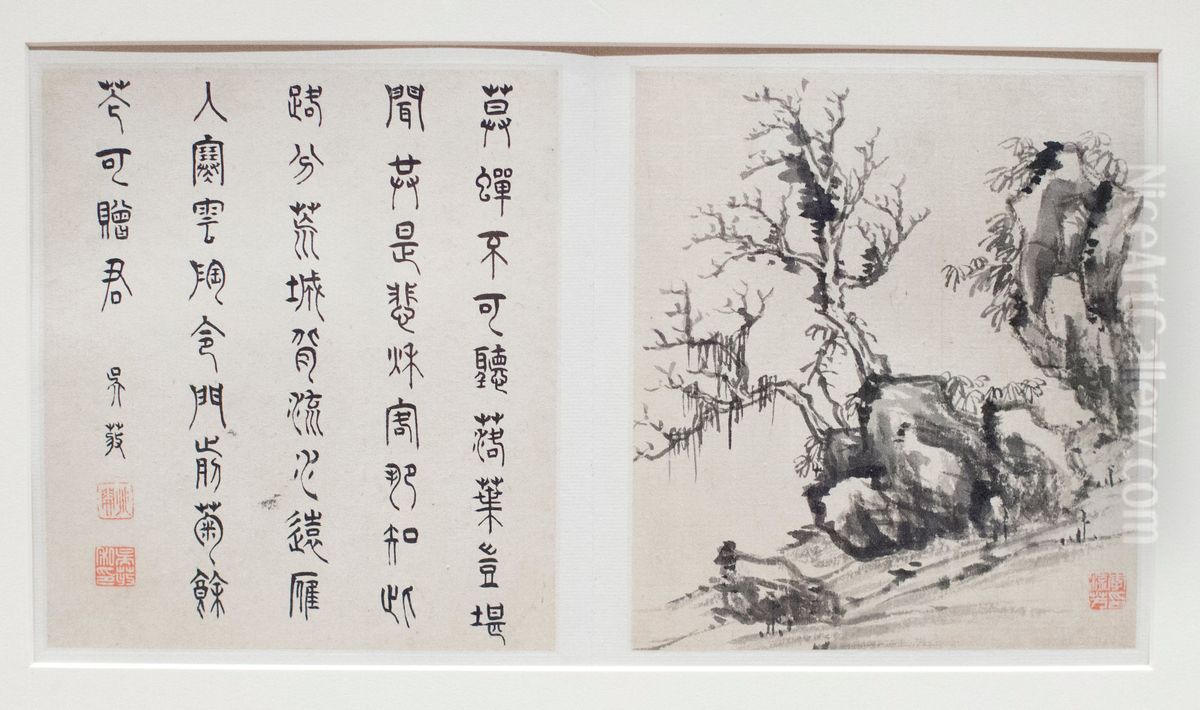 暮蟬不可聽落葉豈堪
聞共是悲秋客那知此
路分荒城背流水遠雁
入寒雲陶令門前菊餘
花可贈君 吳
NiceArtGallery.com